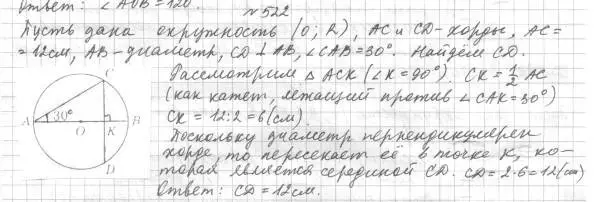 Ответ: ∠AOB = 120°.
№522
Пусть дана окружность (O; R), AC и CD - хорды, AC=
= 12см, AB - диаметр, CD ⊥ AB, ∠CAB = 30°. Найдём CD.
Рассмотрим △ ACK (∠K = 90°). CK = 1/2 AC
(как катет, лежащий против ∠CAK = 30°)
CK = 12:2 = 6 (см).
Поскольку диаметр перпендикулярен
хорде, то пересекает её в точке K, ко-
торая является серединой CD. CD = 2·6 = 12 (см)
Ответ: CD = 12см.
C
A 30° O K B
D